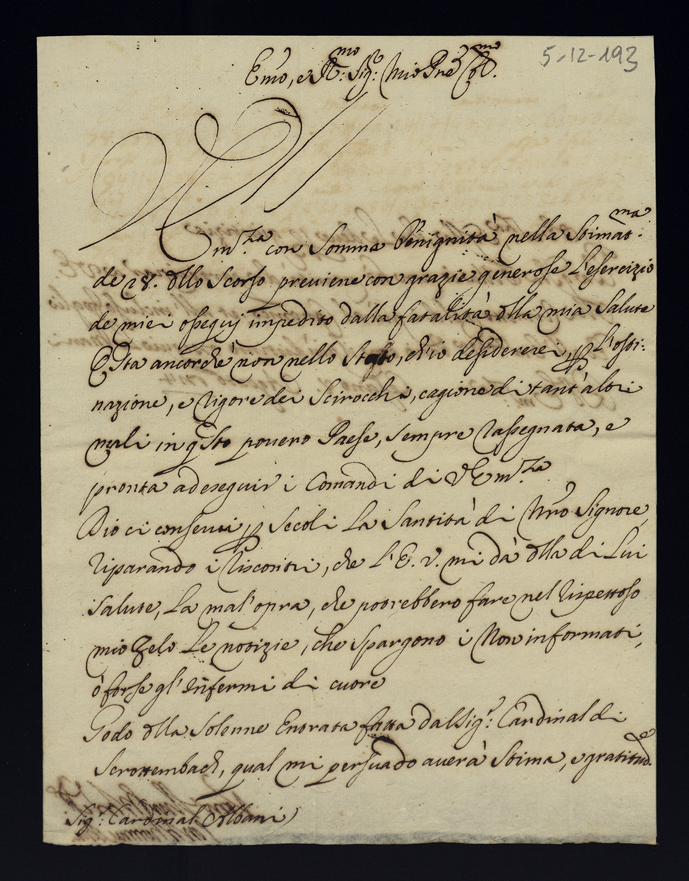 Emo, e Rmo: Sigre: Mio Pne Colmo.
5-12-193
V Emza con somma benignità nella stimatma:
de 28. dllo scorso previene con grazie generose l'esercizio
de miei ossequij impedito dalla fatalità dlla mia salute
Questa ancorche non nello stato, ch'io desidererei, per l'osti:
nazione, e rigore dei Scirocchi, cagione di tant'altri
mali in qsto povero Paese, sempre rassegnata, e
pronta ad eseguir i comandi di V Emza.
Dio ci conservi per secoli la Santità di Nro Signore,
riparando i riscontri, che l'E. V. mi dà dlla di Lui
salute, la mal'opra, che potrebbero fare nel rispettoso
mio zelo le notizie, che spargono i Non informati,
ò forse gl'Infermi di cuore
Godo dlla solenne Entrata fatta dal Sigr: Cardinal di
Scrottembach, qual mi persuado averà stima, e gratitude
Sigr: Cardinal Albani